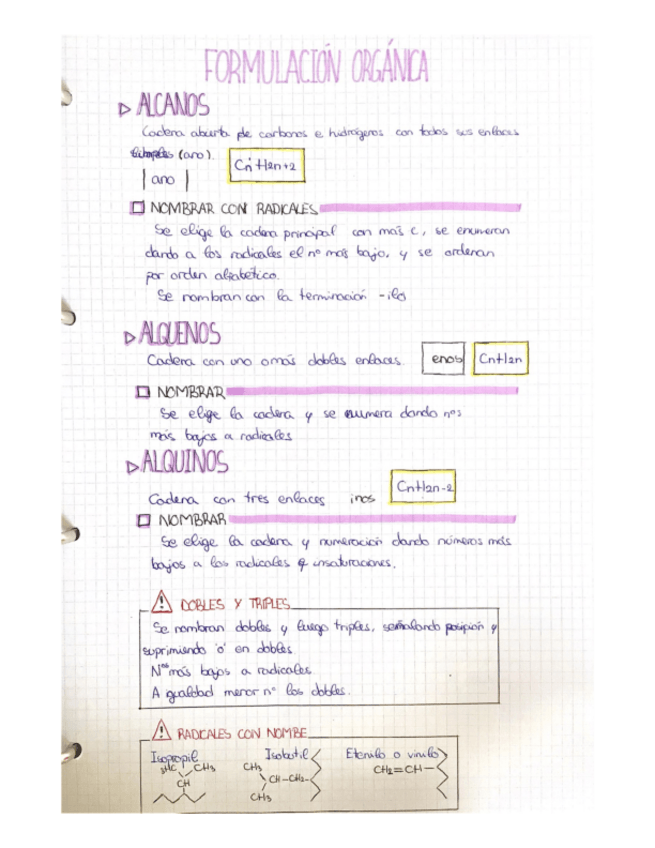 FORMULACIÓN ORGÁNICA
▷ ALCANOS
Cadena abierta de carbonos e hidrógenos con todos sus enlaces
simples (ano).
CnH2n+2
| ano |
NOMBRAR CON RADICALES
Se elige la cadena principal con más c, se enumeran
dando a los radicales el nº más bajo, y se ordenan
por orden alfabético.
Se nombran con la terminación -ilo
▷ ALQUENOS
Cadena con uno o más dobles enlaces. enos CnH2n
NOMBRAR
Se elige la cadena y se numera dando nos
más bajos a radicales
▷ ALQUINOS
CnH2n-2
Cadena con tres enlaces inos
NOMBRAR
Se elige la cadena y numeración dando números más
bajos a los radicales e insaturaciones.
⚠ DOBLES Y TRIPLES
Se nombran dobles y luego triples, señalando posición y
suprimiendo 'o' en dobles.
Nos más bajos a radicales
A igualdad menor nº los dobles.
⚠ RADICALES CON NOMBE
Isopropil Isobutil Etenilo o vinilo
3HC CH3 CH3 CH2=CH-
CH CH-CH2-
CH3